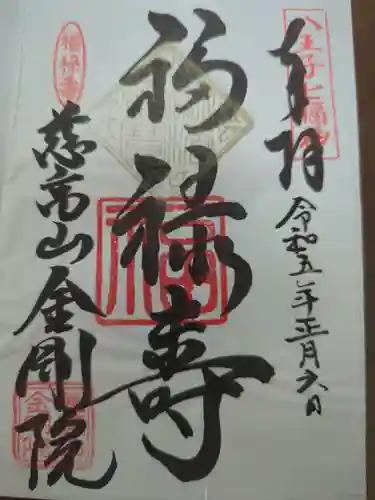 八王子七福神
奉拝
令和五年正月六日
福禄寿
福禄寿
慈高山金剛院